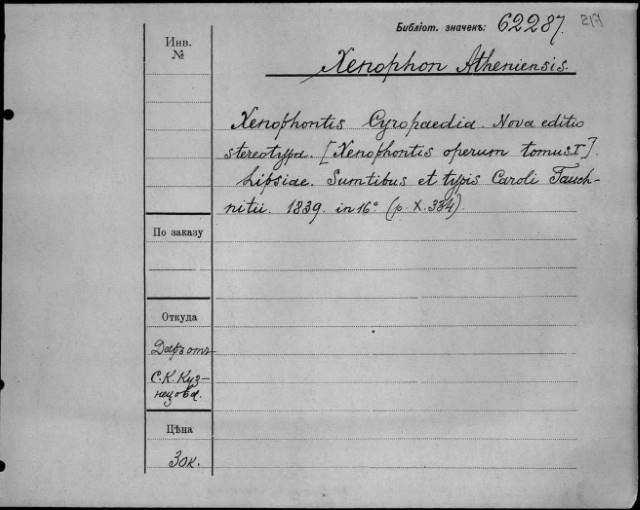 Библіот. значекъ: 62287.
Инв.
№
Xenophon Atheniensis.
Xenophontis Cyropaedia. Nova editio
stereotypa. [Xenophontis operum tomus I].
Lipsiae. Sumtibus et typis Caroli Tauch-
nitii. 1839. in 16° (p. X. 334).
По заказу
Откуда
Даръ отъ
С. К. Куз-
нецова.
Цѣна
30 к.